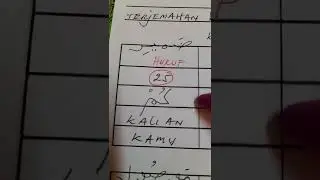 TERJEMAHAN
ضمير
HURUF
25
كُمْ
KALIAN
KAMU